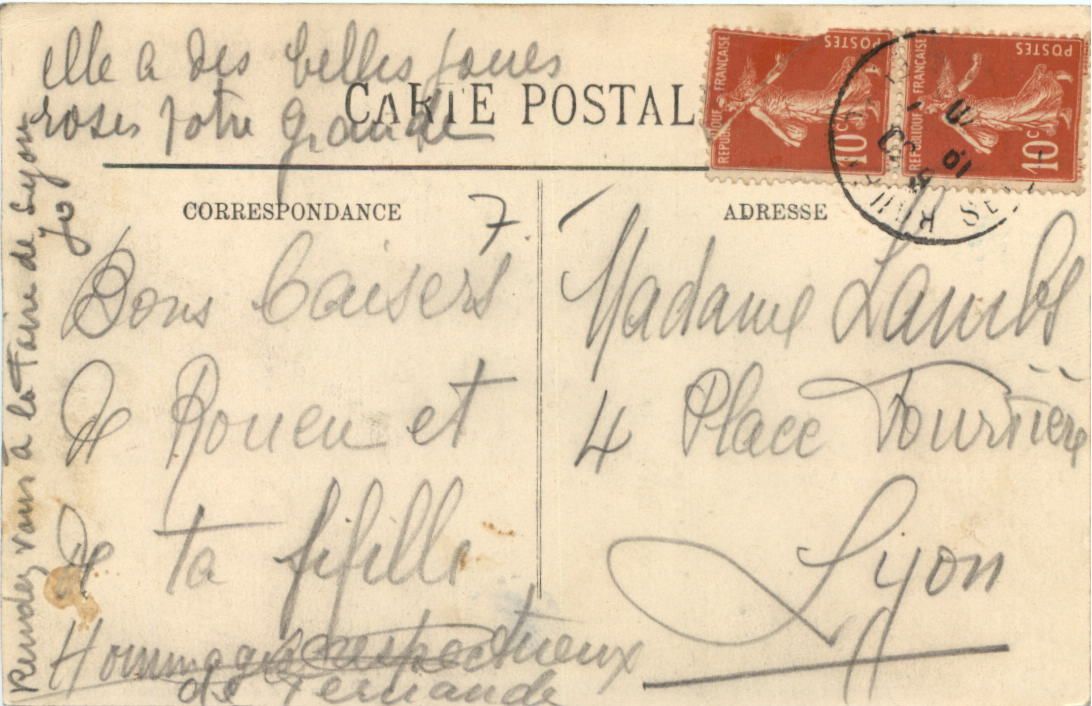 elle a des belles joues
roses votre grande
CARTE POSTAL
REPUBLIQUE FRANÇAISE
POSTES
10c
REPUBLIQUE FRANÇAISE
POSTES
10c
CORRESPONDANCE
7.
Bons baisers
de Rouen et
de ta fifille
Hommages respectueux
de Fernande
Rendez vous à la Foire de Lyon
Jo
ADRESSE
Madame
4 Place
Lyon